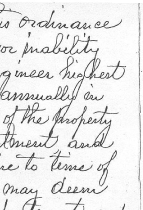 is ordinance
or inability
gineer highest
annually in
of the property
tment and
ire to time of
may deem